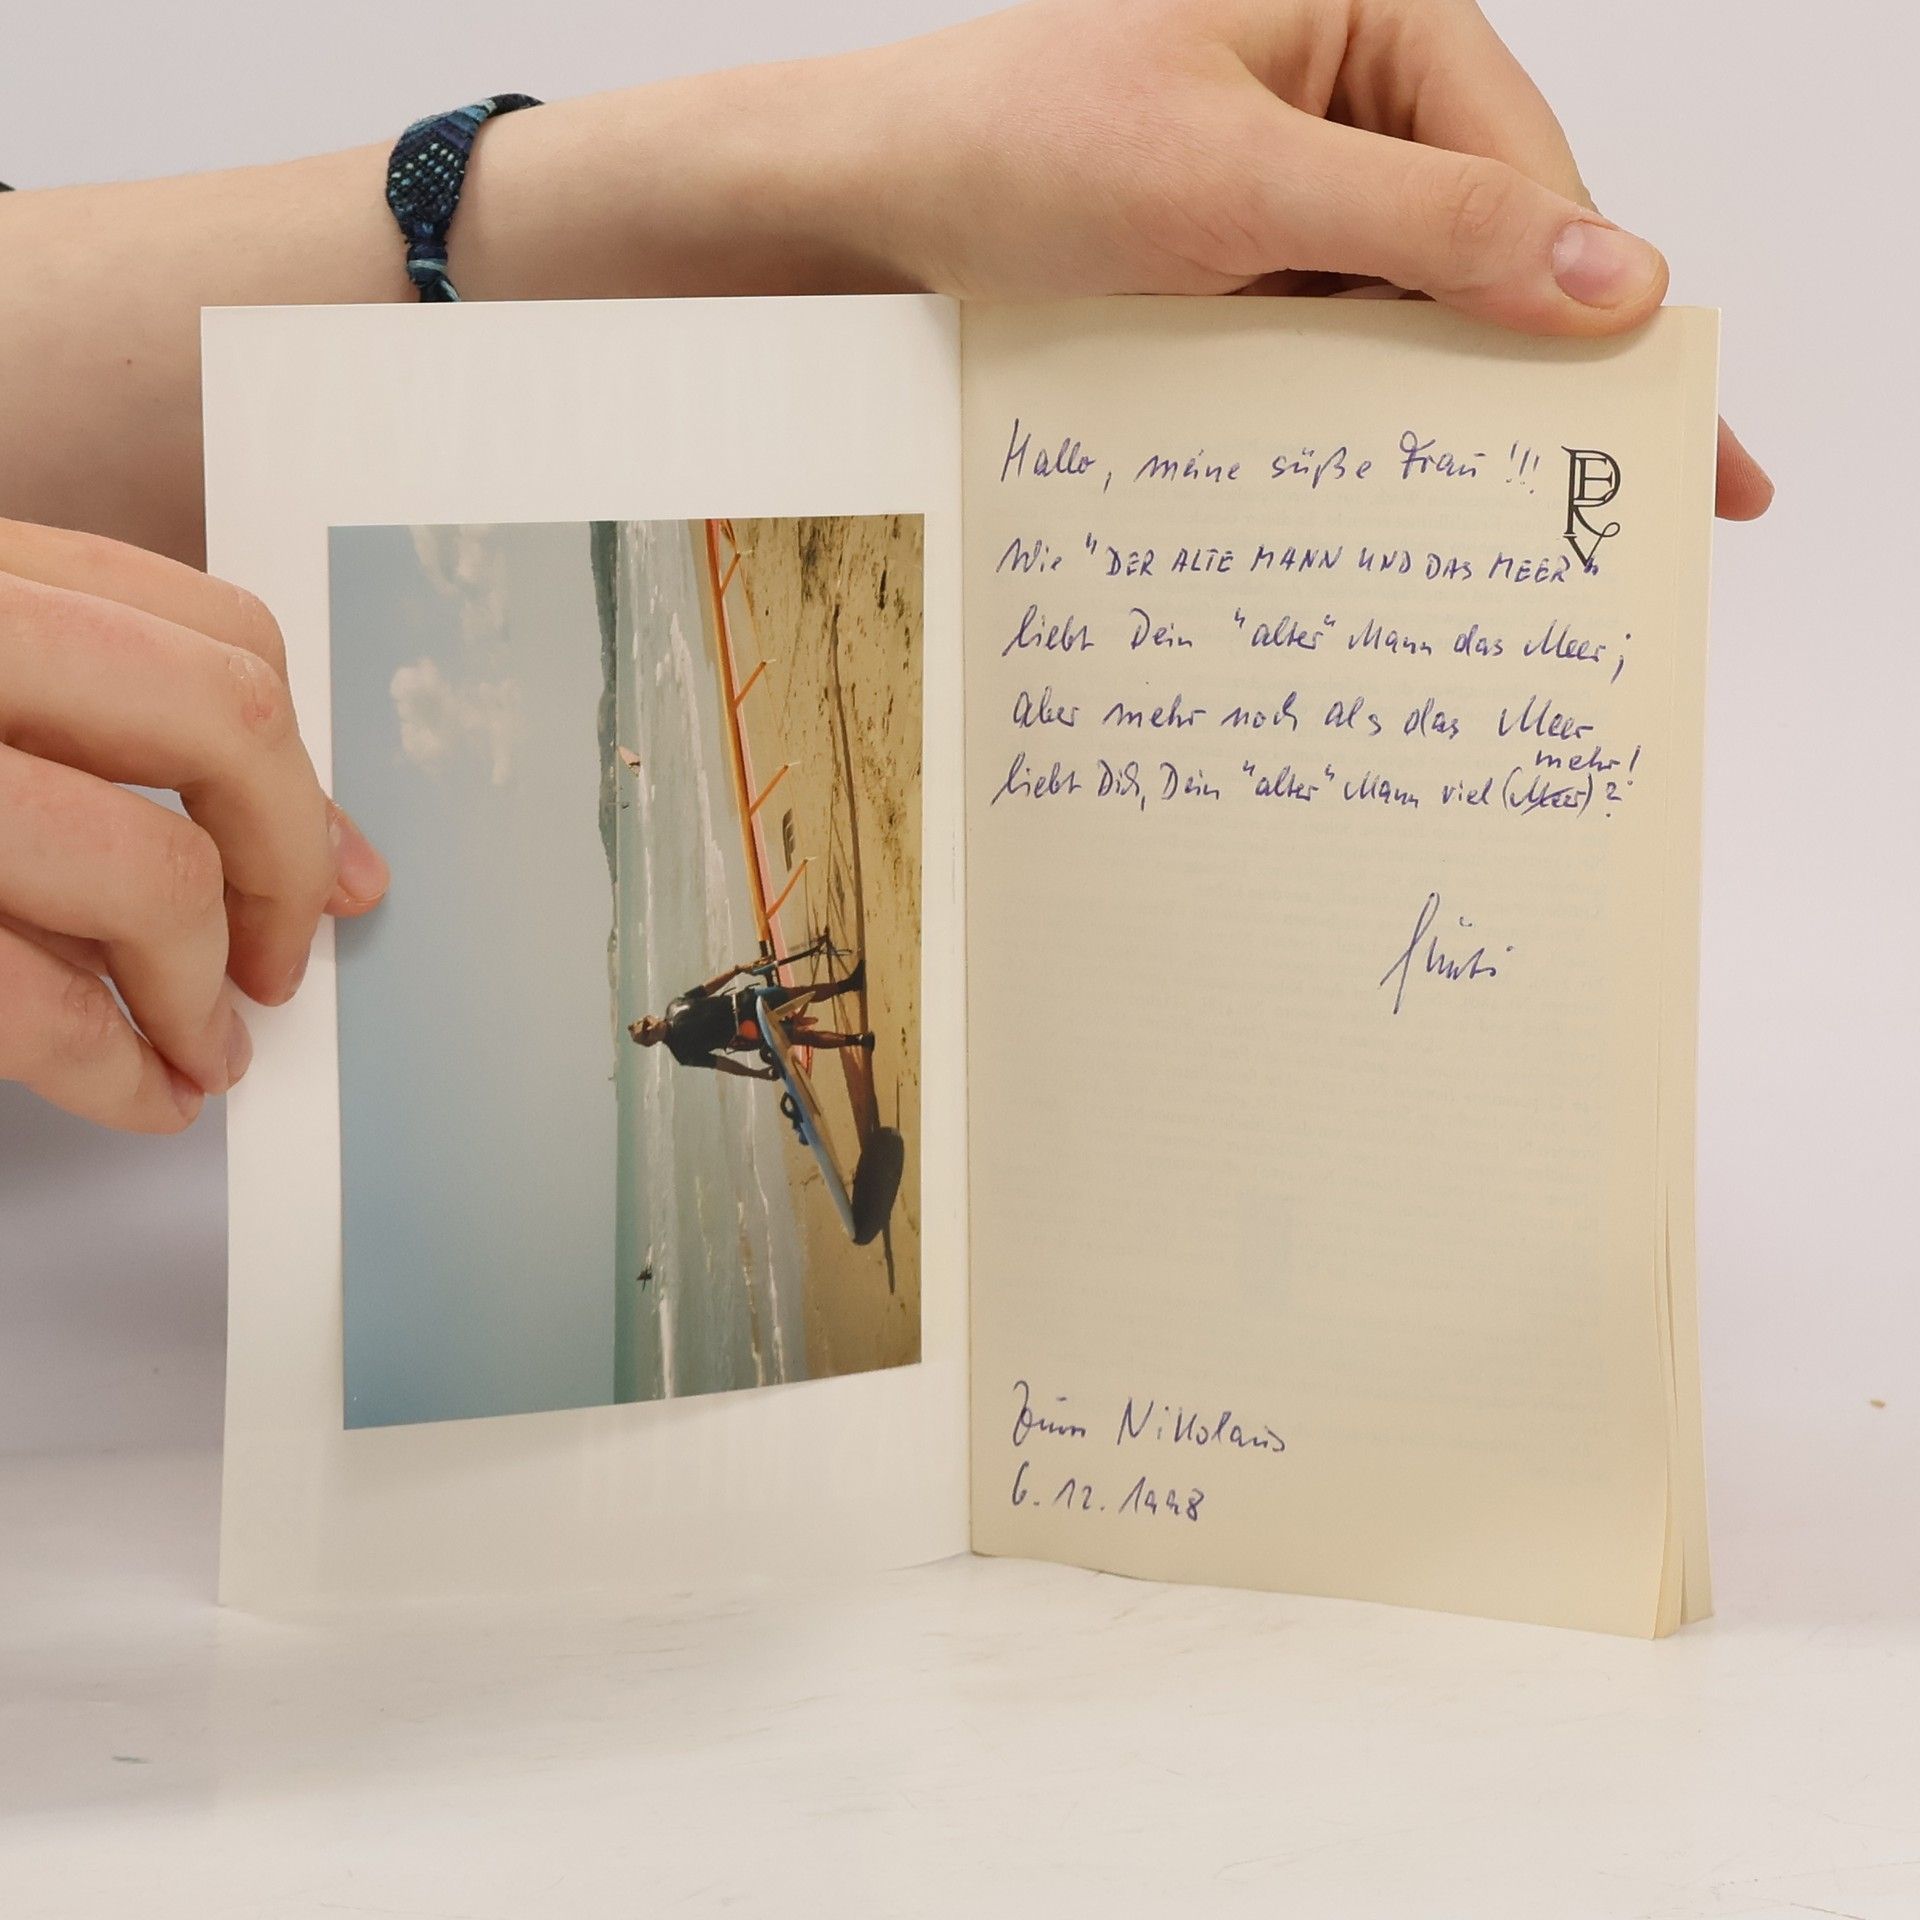 Hallo, meine süße Frau!!!
Wie "DER ALTE MANN UND DAS MEER"
liebt Dein "alter" Mann das Meer;
aber mehr noch als das Meer
mehr!
liebt Dich, Dein "alter" Mann viel (Meer)?
Zum Nikolaus
6.12.1998